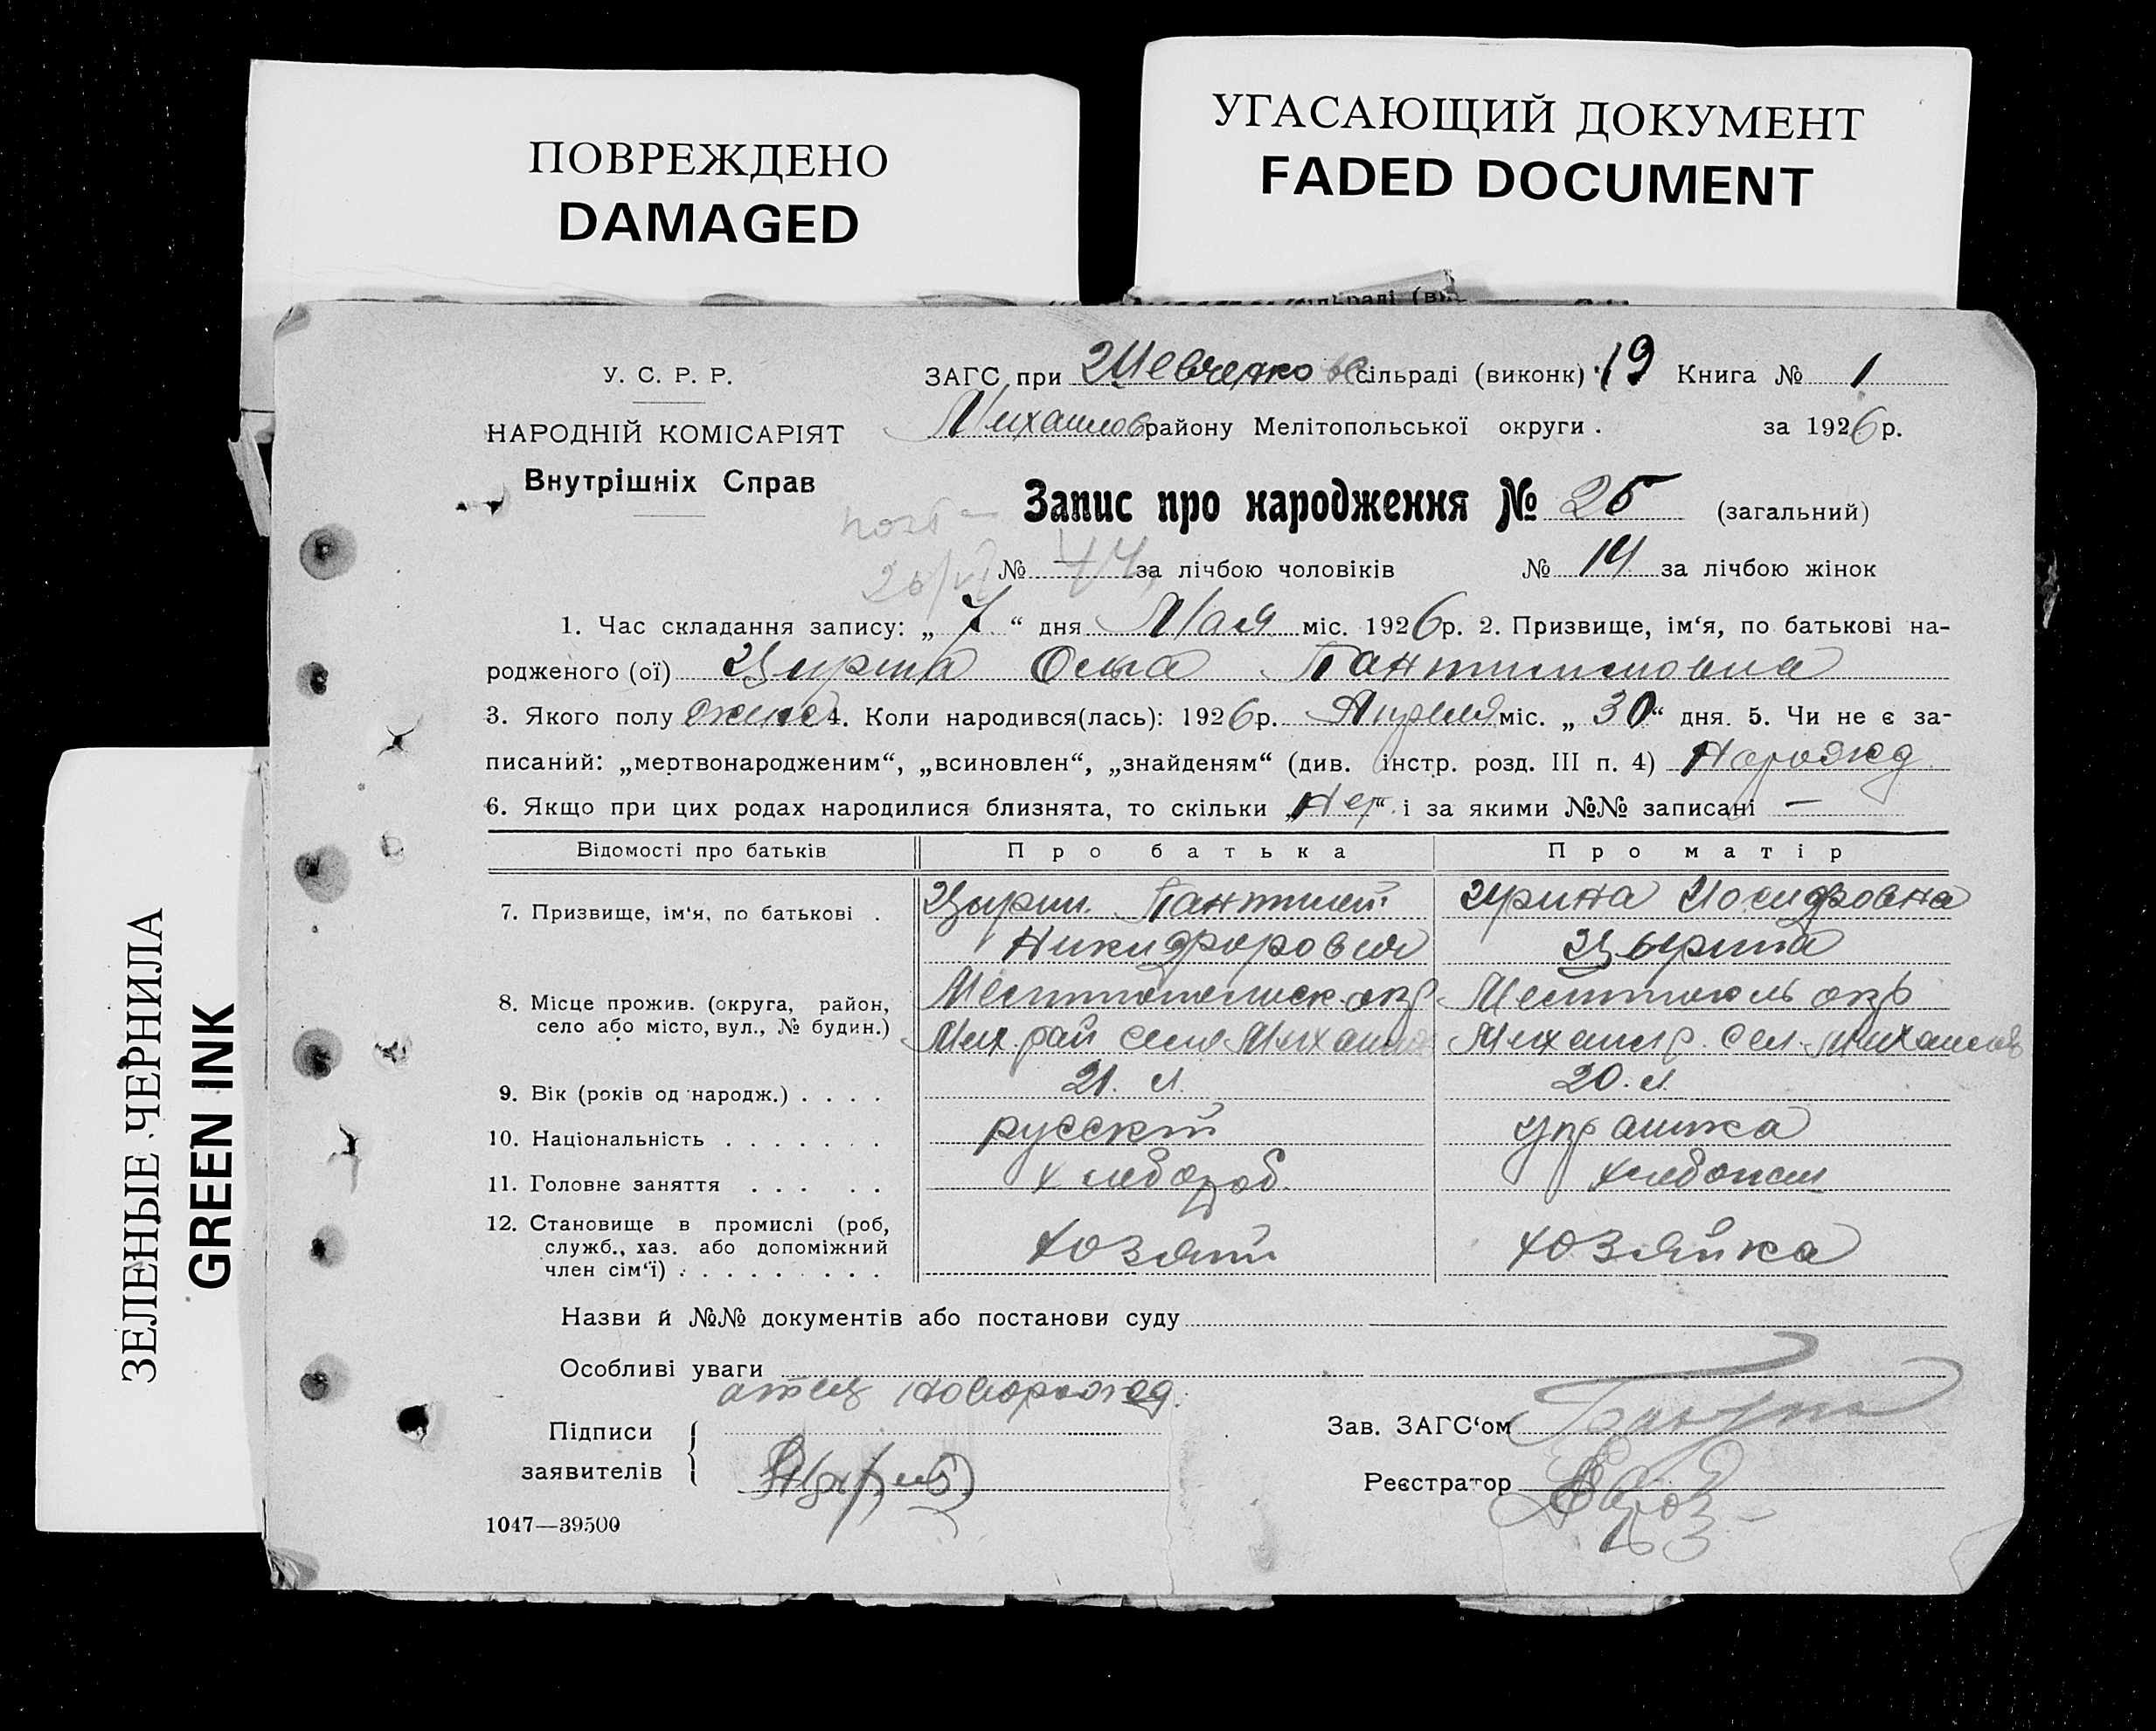 ПОВРЕЖДЕНО
DAMAGED
УГАСАЮЩИЙ ДОКУМЕНТ
FADED DOCUMENT
ЗЕЛЕНЫЕ ЧЕРНИЛА
GREEN INK
У. С. Р. Р.
НАРОДНІЙ КОМІСАРІЯТ
Внутрішніх Справ
ЗАГС при Шевченко сільраді (виконк) 19 Книга № 1
Михайлов району Мелітопольської округи. за 1926 р.
Запис про народження № 25 (загальний)
№ за лічбою чоловіків № 14 за лічбою жінок
1. Час складання запису: „ 7 “ дня Мая міс. 1926 р. 2. Призвище, ім‘я, по батькові на-
родженого (ої) Пантилимовна
3. Якого полу 4. Коли народився(лась): 1926 р. Апреля міс. „ 30 “ дня. 5. Чи не є за-
писаний: „мертвонародженим“, „всиновлен“, „знайденям“ (див. інстр. розд. III п. 4) Нарожд
6. Якщо при цих родах народилися близнята, то скільки „Нет“ і за якими №№ записані —
Відомості про батьків Про батька Про матір
7. Призвище, ім‘я, по батькові . Цирин. Пантилей Ирина Иосифовна
Никифорович Цырина
8. Місце прожив. (округа, район, Мелитопольск. окр Мелитополь окр
село або місто, вул., № будин.) Мих. рай село Михайлов Михайл р. сел. Михайлов
9. Вік (років од народж.) . . . . 21. л. 20. л.
10. Національність . . . . . . . русский украинка
11. Головне заняття . . . . . хлебороб. хлебопаш
12. Становище в промислі (роб,
служб., хаз. або допоміжний хозяин хозяйка
член сім‘ї) . . . . . . . . .
Назви й №№ документів або постанови суду
Особливі уваги
отец новорожд.
Підписи
заявителів
Зав. ЗАГС‘ом
Реєстратор
1047—39500